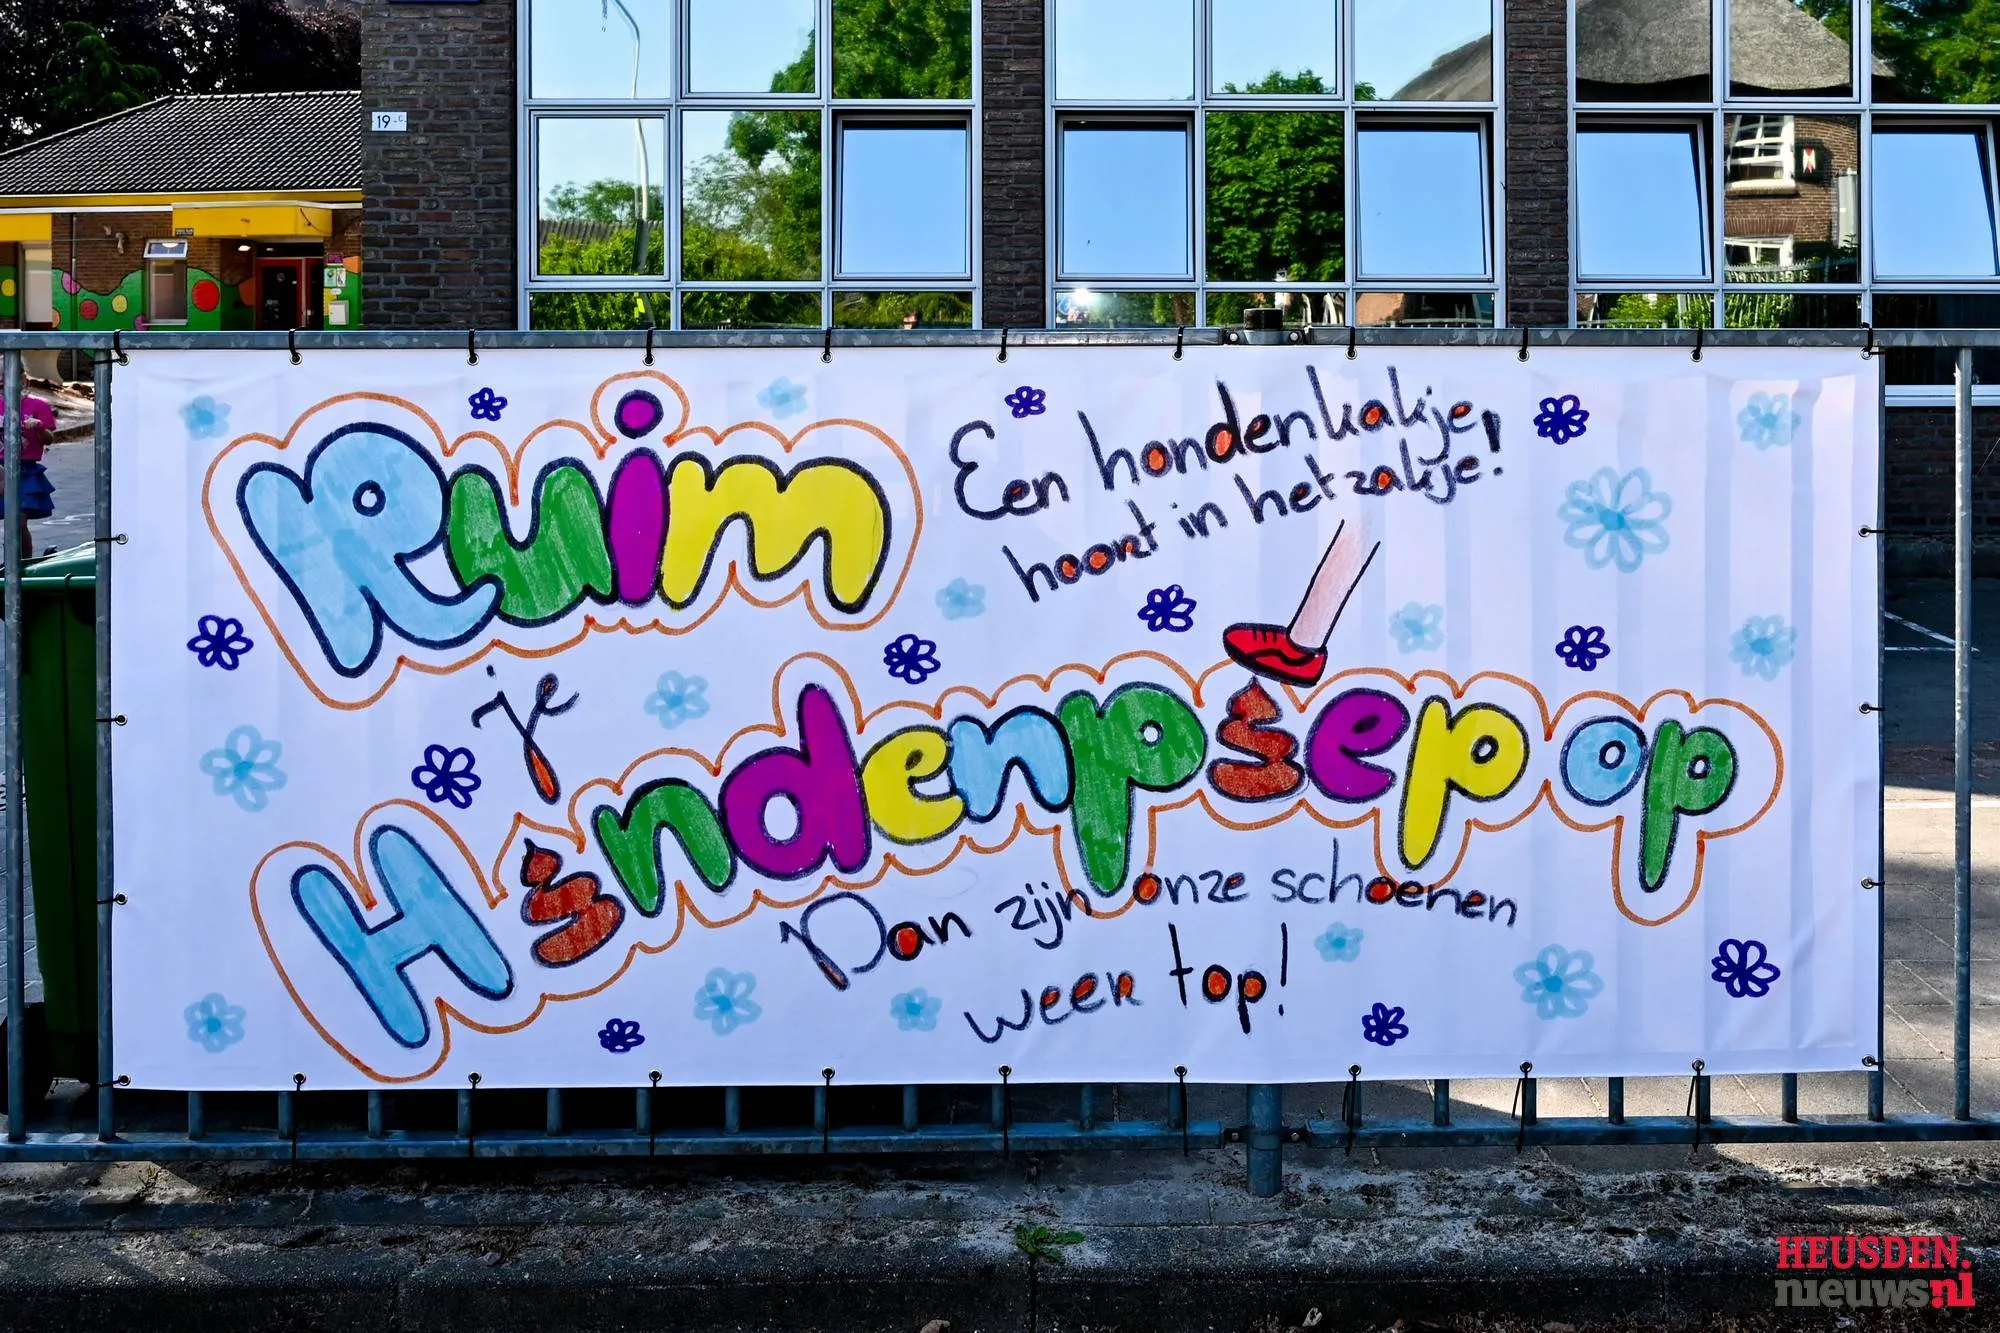 19-c
Ruim
Een hondenkakje,
hoort in het zakje!
je
Hondenpoep op
Dan zijn onze schoenen
weer top!
HEUSDEN.
nieuws.nl